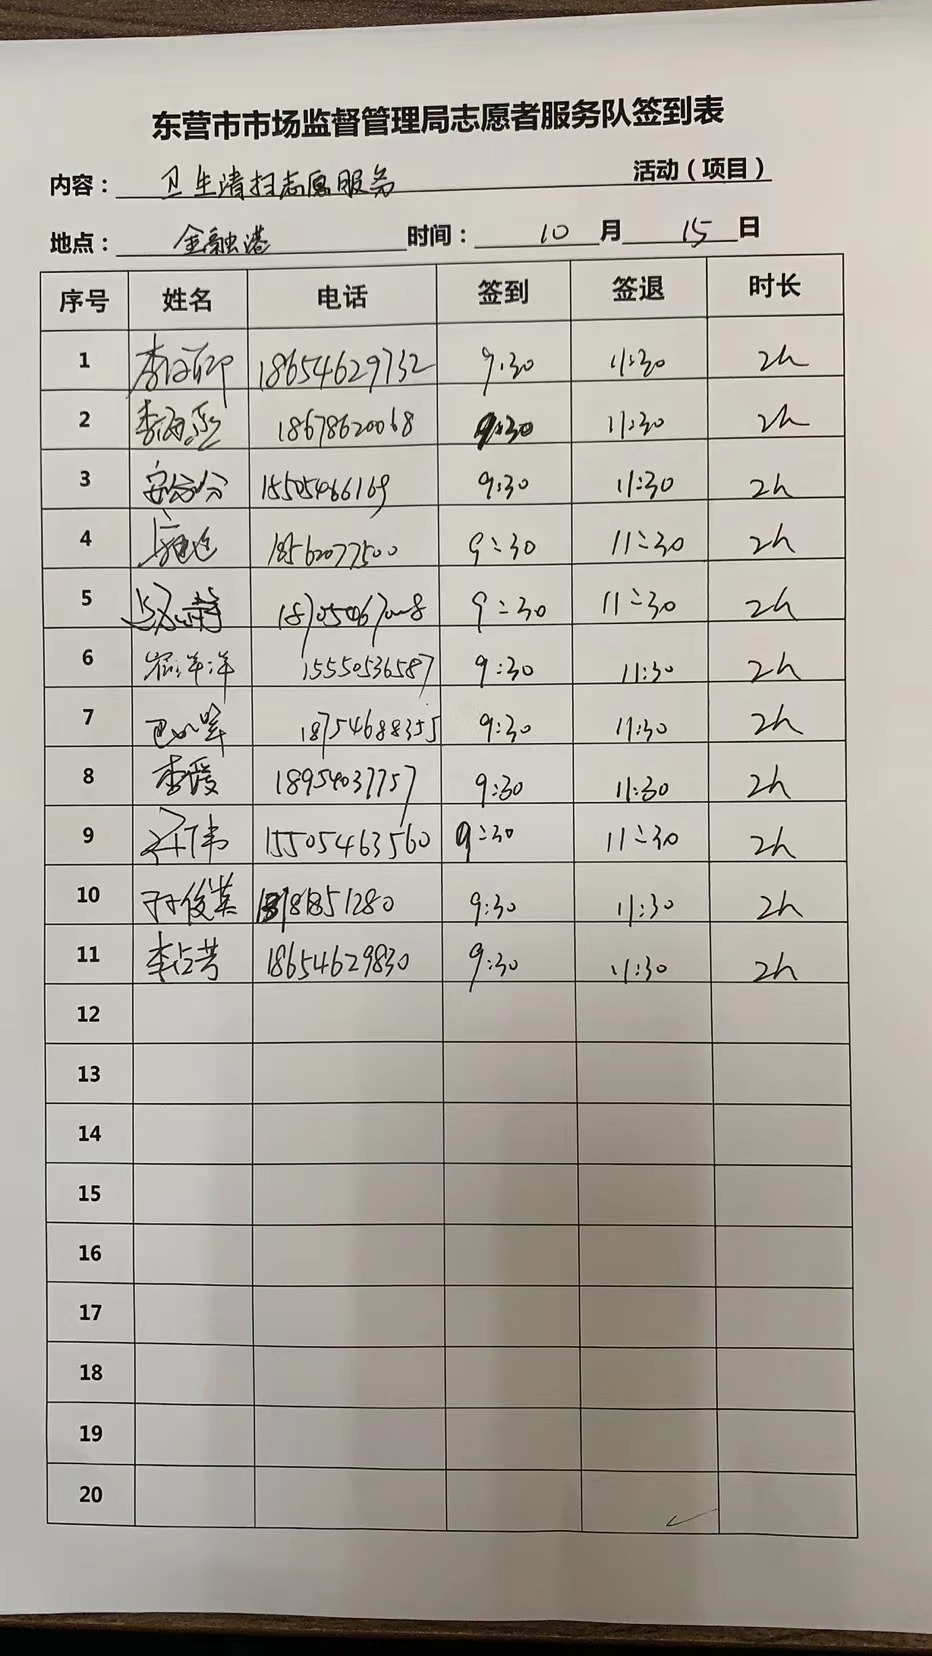 东营市市场监督管理局志愿者服务队签到表
内容：卫生清扫志愿服务 活动（项目）
地点：金融港 时间：10月15日
序号 姓名 电话 签到 签退 时长
1 18654629732 9:30 11:30 2h
2 18678620068 9:30 11:30 2h
3 15505466169 9:30 11:30 2h
4 18562077500 9:30 11:30 2h
5 9:30 11:30 2h
6 崔洋洋 15550536587 9:30 11:30 2h
7 18754688355 9:30 11:30 2h
8 李霞 18954037757 9:30 11:30 2h
9 15505463560 9:30 11:30 2h
10 孙俊英 9:30 11:30 2h
11 李占芳 18654629830 9:30 11:30 2h
12
13
14
15
16
17
18
19
20